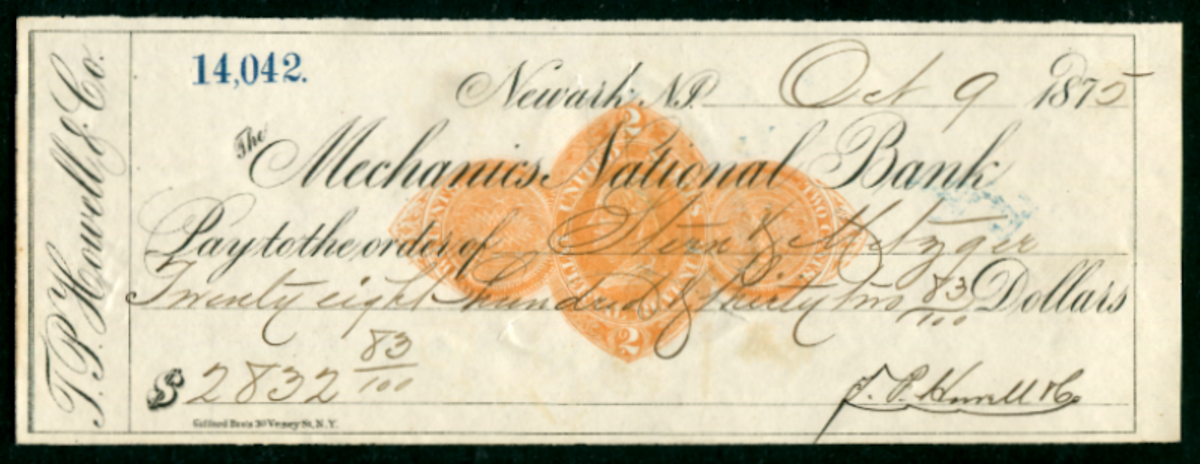 T. P. Howell & Co.
14,042.
Newark, N.J. Oct 9 1875
The Mechanics National Bank
Pay to the order of Stern & Metzger
Twenty eight hundred & thirty two 83/100 Dollars
$2832 83/100
T. P. Howell & Co.
Gifford Bro's 30 Vesey St, N.Y.
2
UNITED
INTERNAL
2